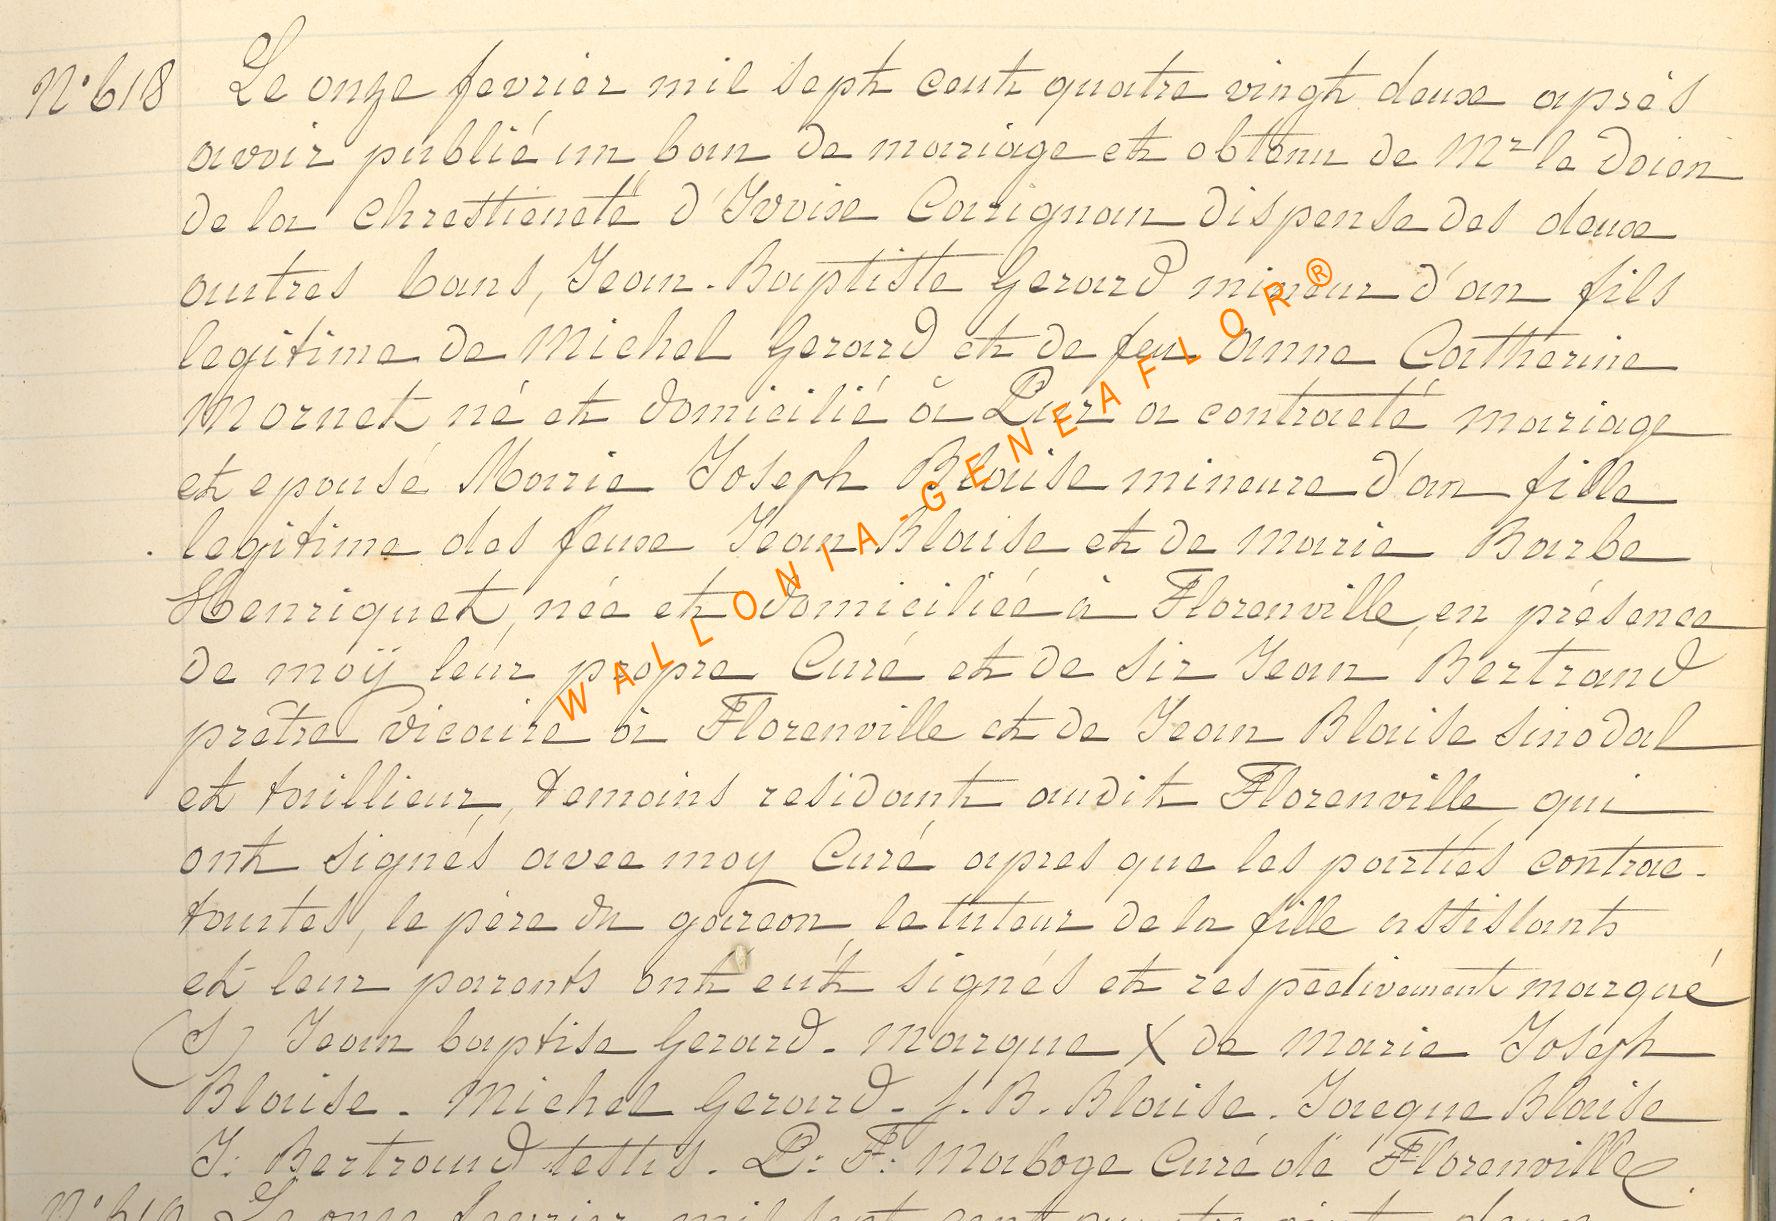 N° 618 Le onze fevrier mil sept cent quatre vingt deux après
avoir publié un ban de mariage et obtenu de Mr le Doien
de la chrestieneté d'Yvoix Carignan dispense des deux
autres bans, Jean-Baptiste Gerard mineur d'an fils
legitime de Michel Gerard et de feu Anne Catherine
Mornet né et domicilié à Pur a contracté mariage
et epousé Marie Joseph Blaise mineure d'an fille
legitime des feux Jean Blaise et de Marie Barbe
Henriquet, née et domiciliée à Florenville, en présence
de moÿ leur propre Curé et de Sir Jean Bertrand
prêtre vicaire à Florenville et de Jean Blaise sinodal
et taillieur, temoins residant audit Florenville qui
ont signés avec moy Curé apres que les parties contrac-
tantes, le père du garcon, le tuteur de la fille assistants
et leur parents ont eut signés et respectivement marqué
(S) Jean baptise Gerard. Marque X de Marie Joseph
Blaise. Michel Gerard. J. B. Blaise. Jacque Blaise
J: Bertrand testis. P: F: Maboge Curé de Florenville.
N° 619 Le onze fevrier mil sept cent quatre vingt deux
WALLONIA-GENEAFLOR®